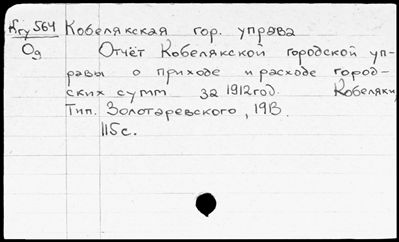 Ксу 564 Кобелякская гор. управа
Од Отчёт Кобелякской городской уп-
равы о приходе и расходе город-
ских сумм за 1912 год. Кобеляки,
Тип. Золотаревского, 1913.
115 с.